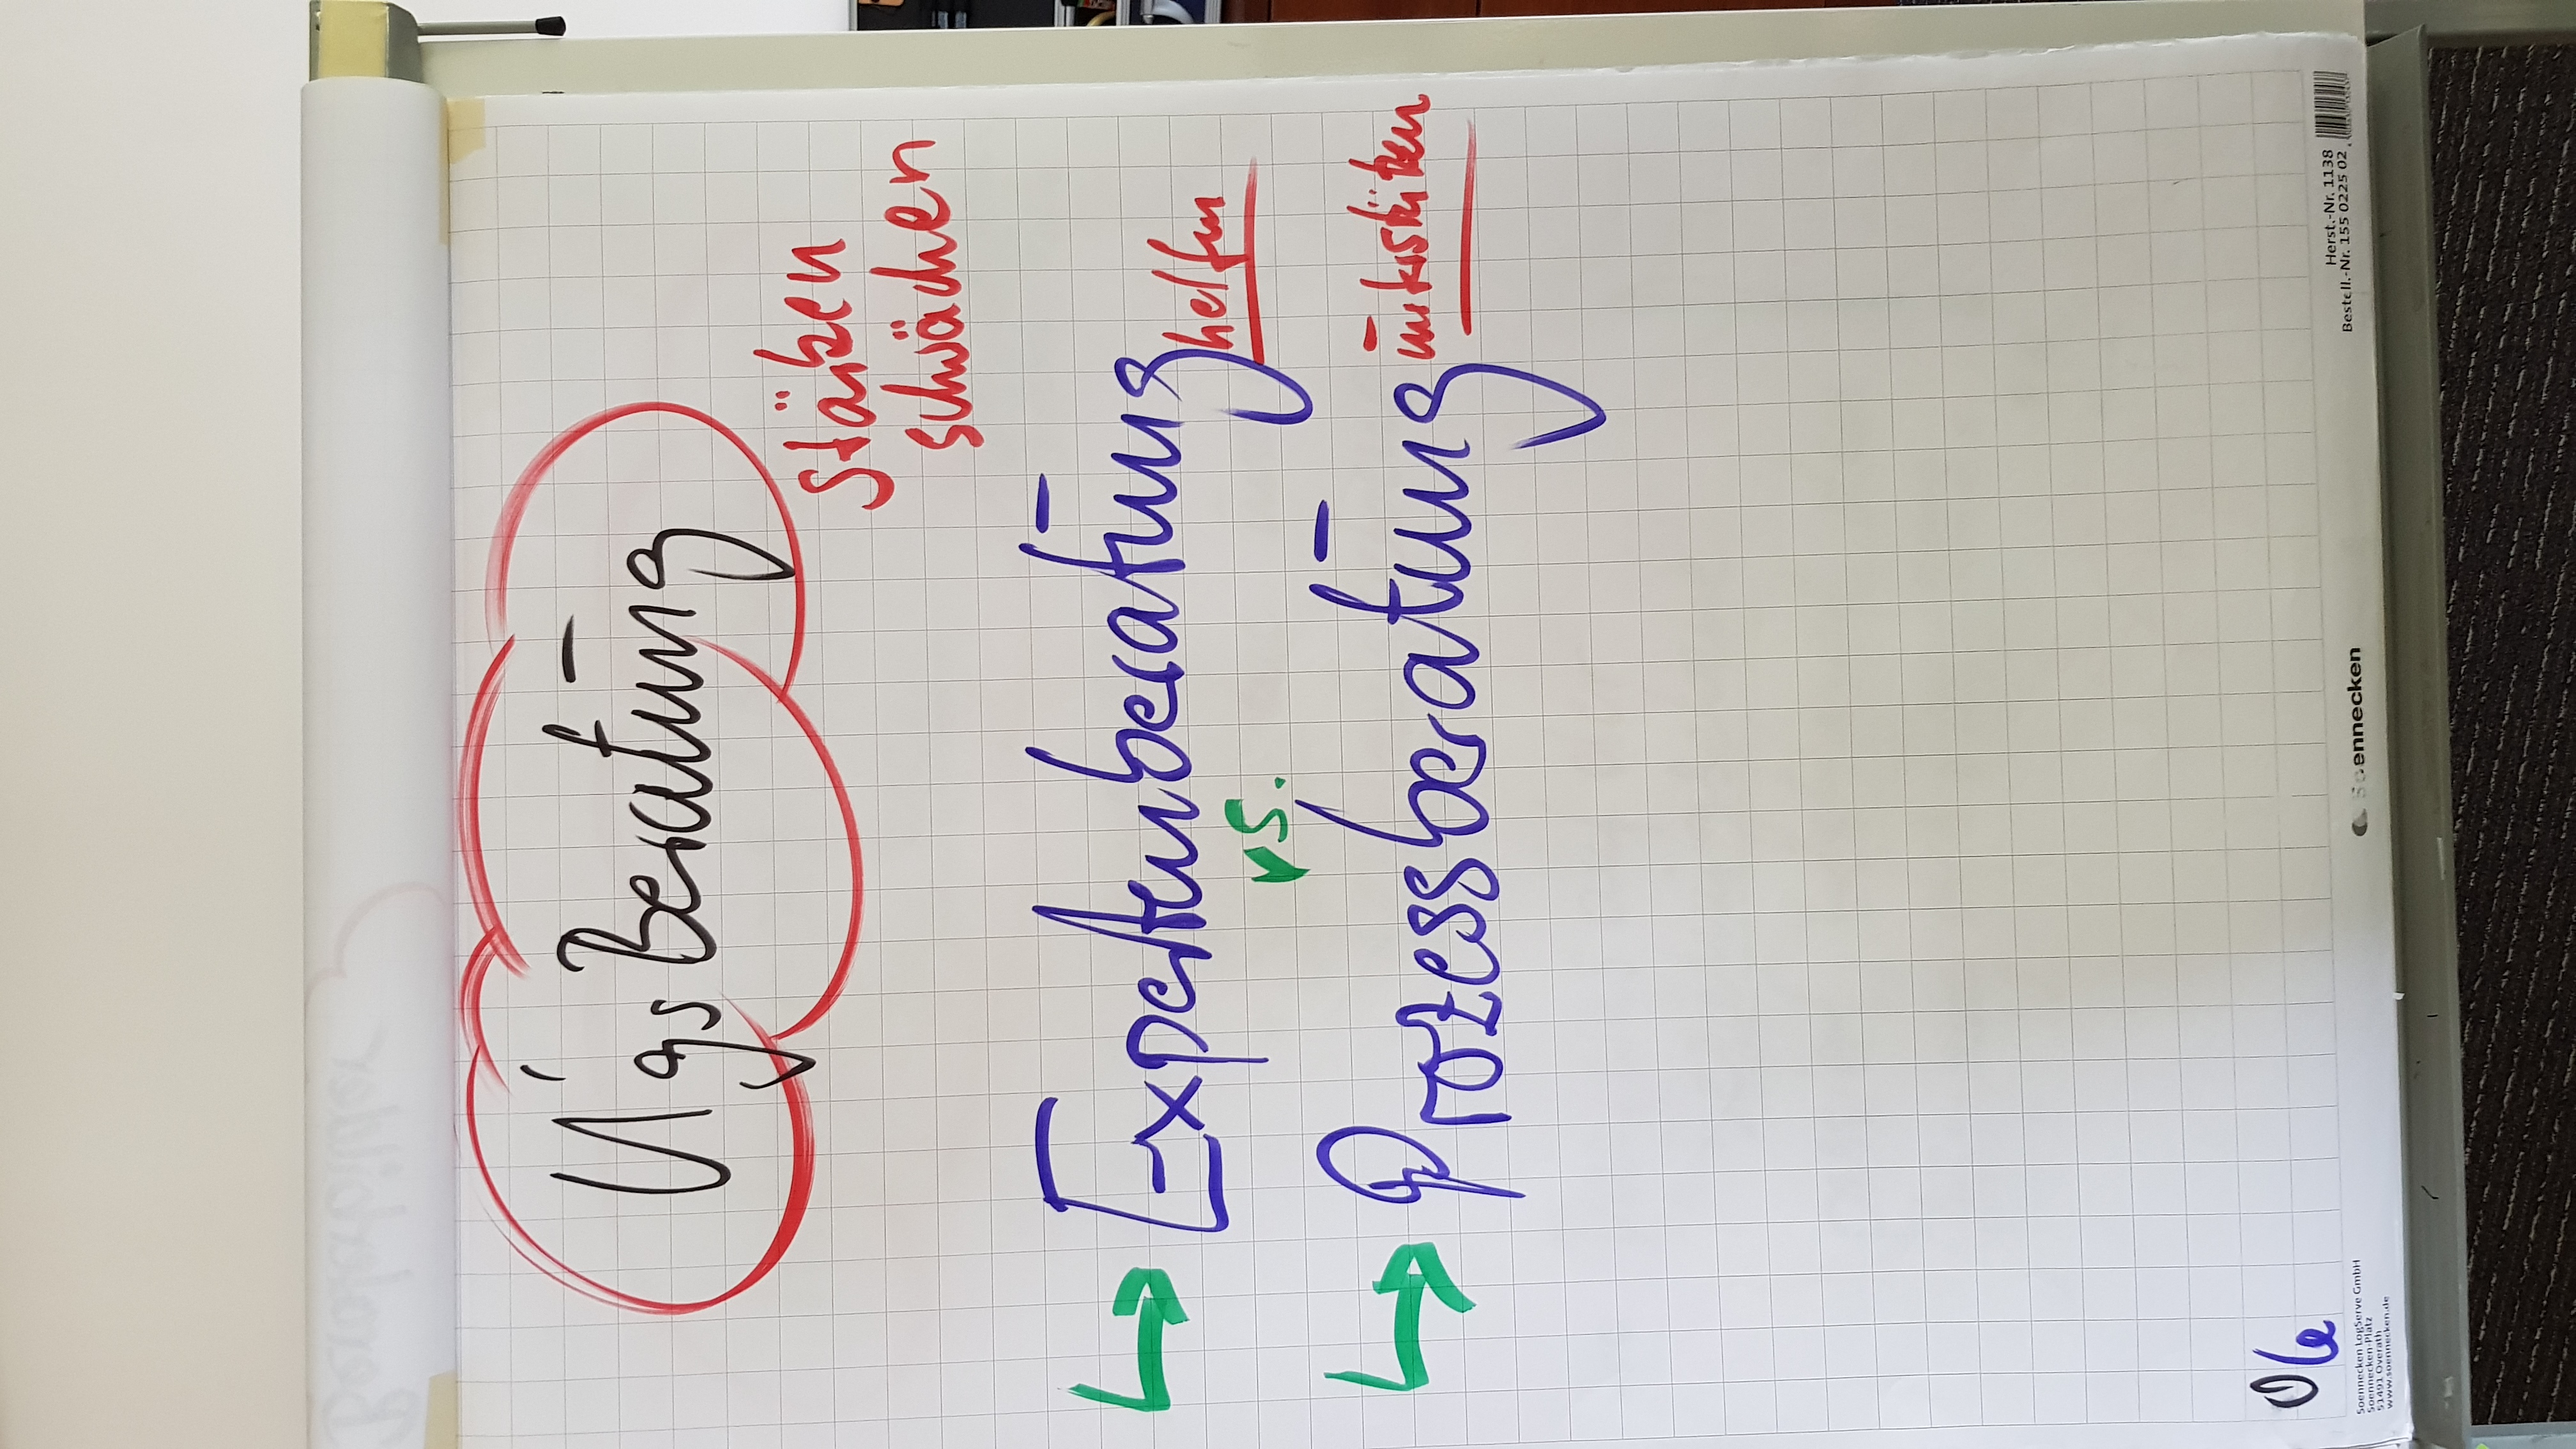 Beraterbilder
U'gsBeratung
Stärken
schwächen
Expertenberatung
helfen
vs.
Prozessberatung
unterstützen
Soennecken LogServe GmbH
Soennecken-Platz
51491 Overath
www.soennecken.de
Soennecken
Herst.-Nr. 1138
Bestell.-Nr. 155 0225 02